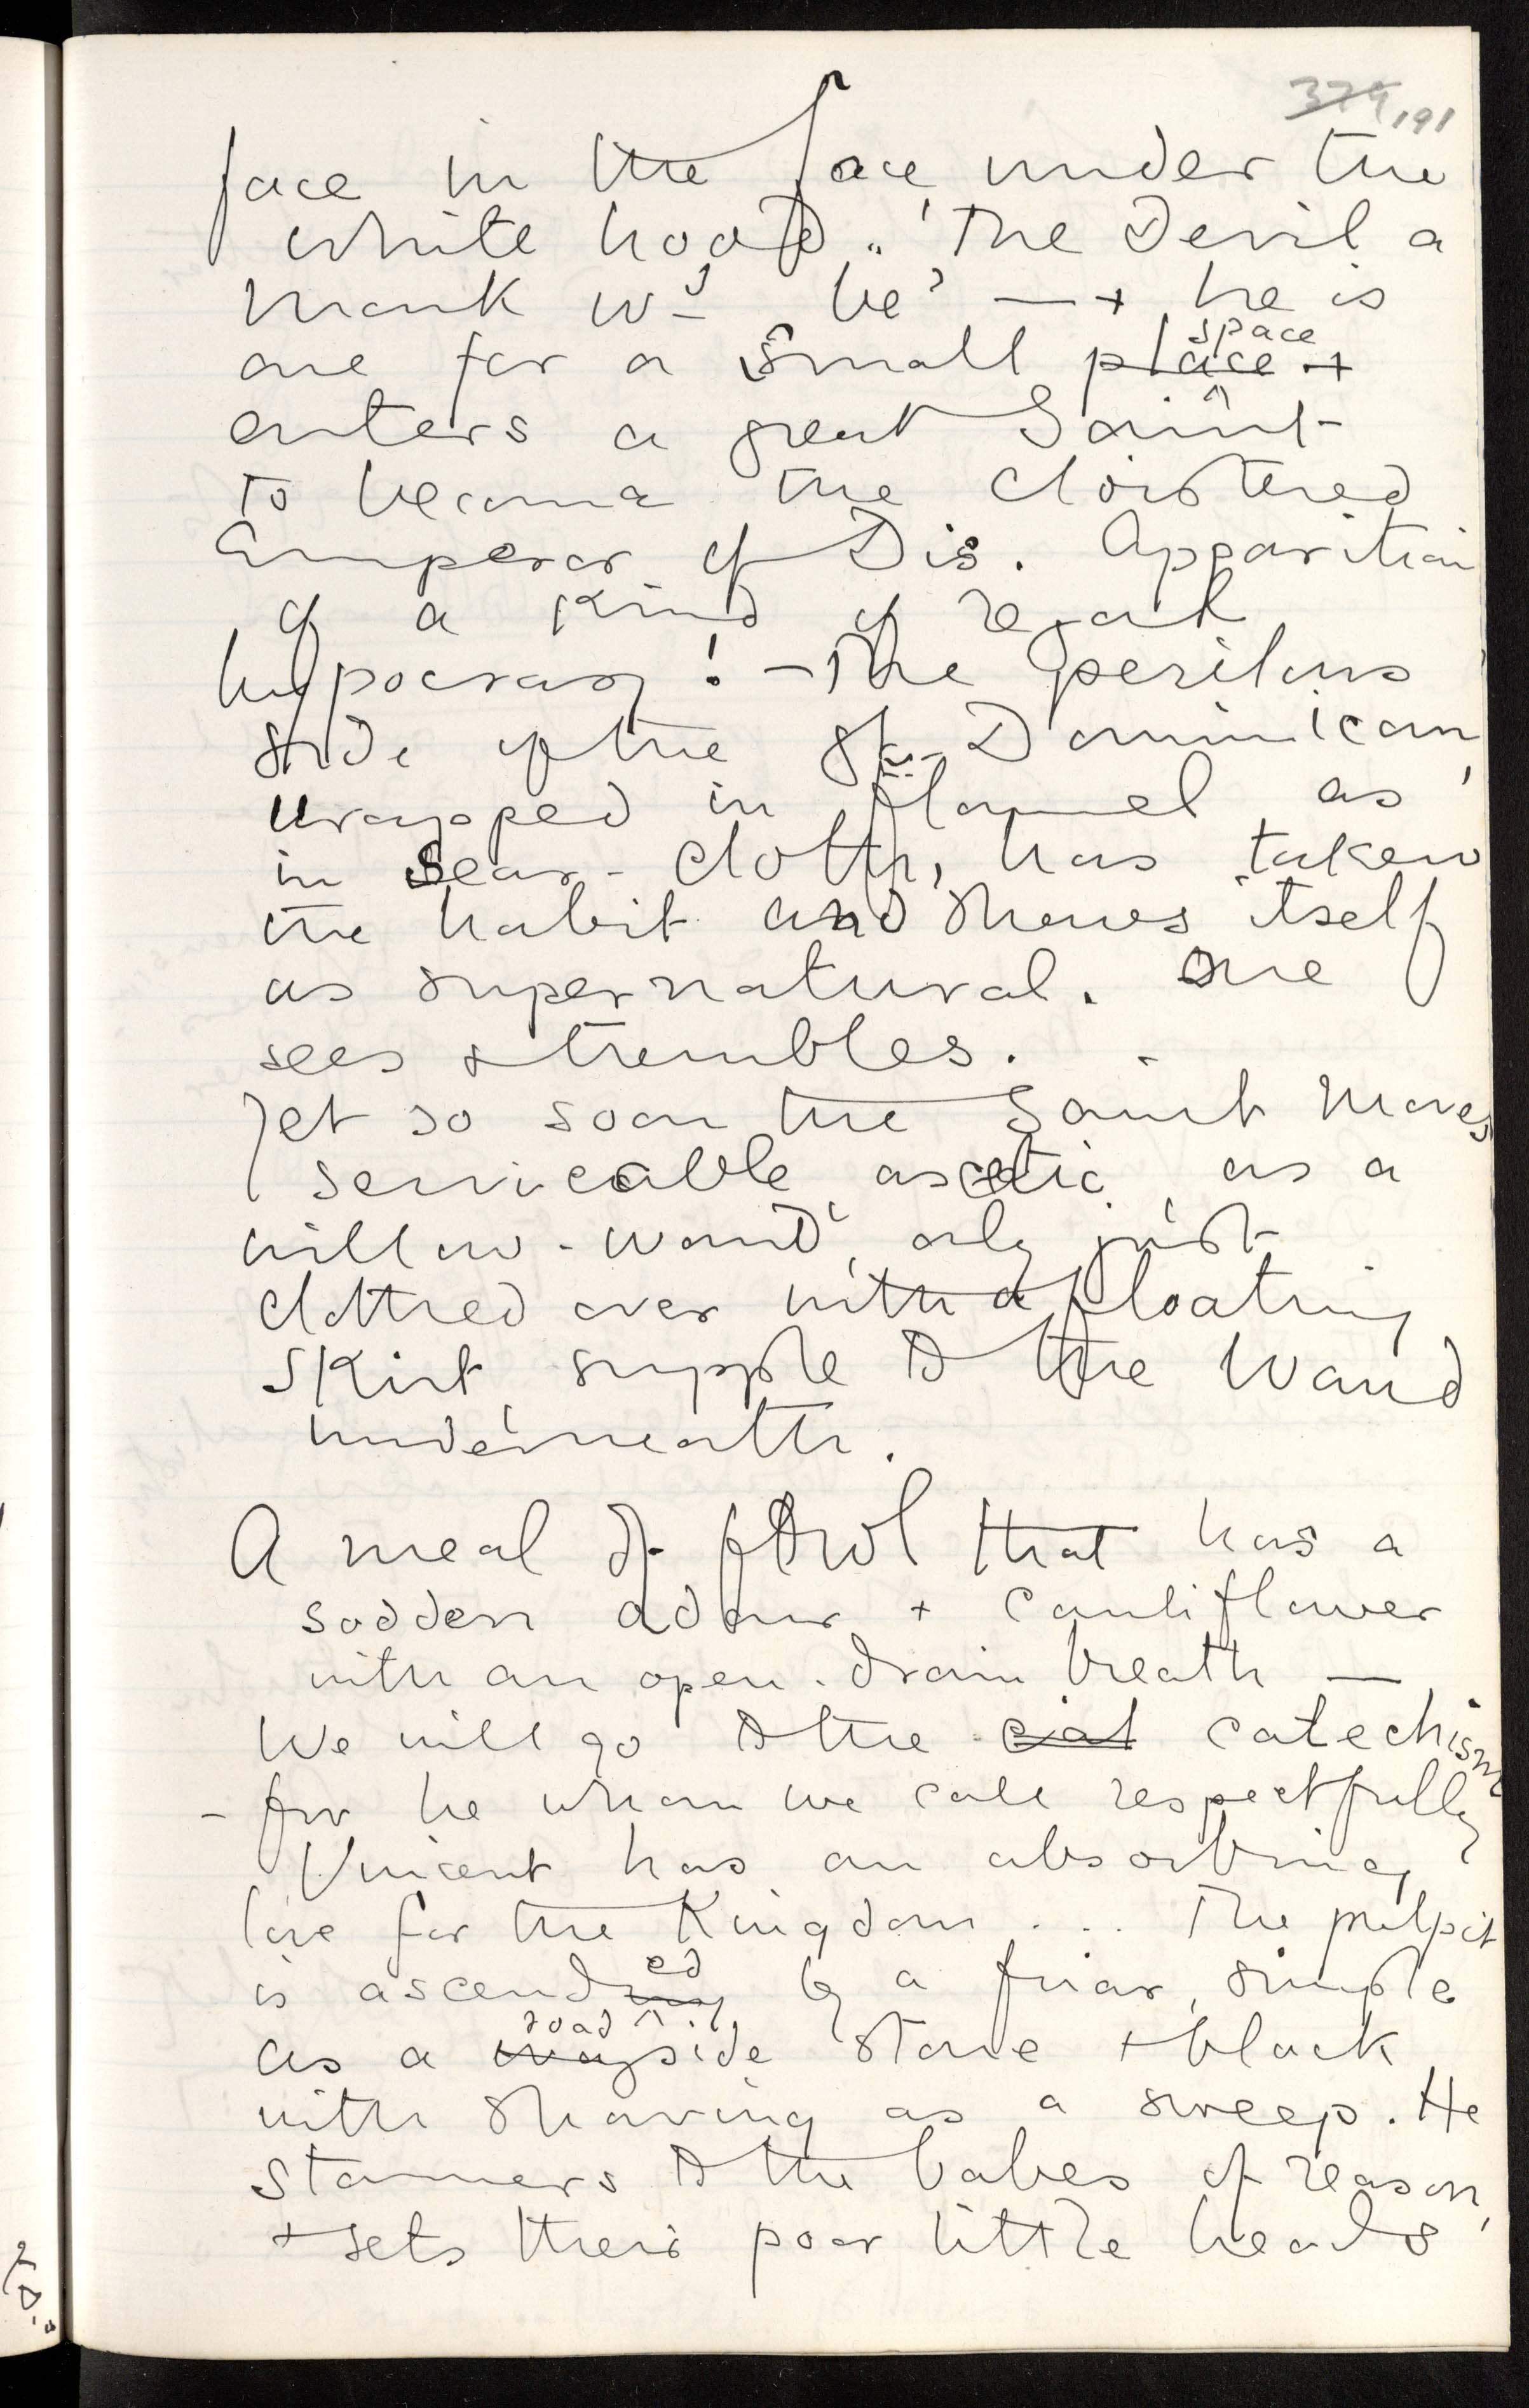 379 191
face in the face under the
white hood. 'The Devil a
monk wd be' — + he is
one for a small place space +
enters a great Saint
to become the cloistered
Emperor of Dis. Apparition
of a kind of regal
hypocrasy! – The perilous
side of the gt. Dominican,
wrapped in flannel as
in sear-cloth, has taken
the habit and shows itself
as supernatural. One
sees + trembles.
Yet so soon the Saint moves
servicable, ascetic, as a
willow-wand, only just
clothed over with a floating
skirt supple to the wand
underneath.
A meal of fowl that has a
sodden odour + cauliflower
with an open-drain breath —
We will go to the cat catechism
– for he whom we call respectfully
Vincent has an absorbing
love for the Kingdom ... The pulpit
is ascending ed by a friar, simple
as a wayside road stone + black
with shaving as a sweep. He
stamers to the babes of reason,
+ sets their poor little heads
to..